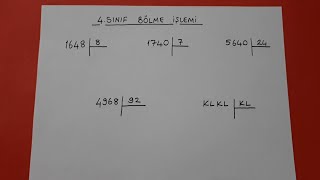 4. SINIF BÖLME İŞLEMİ
1648 8 1740 7 5640 24
4968 92 KLKL KL